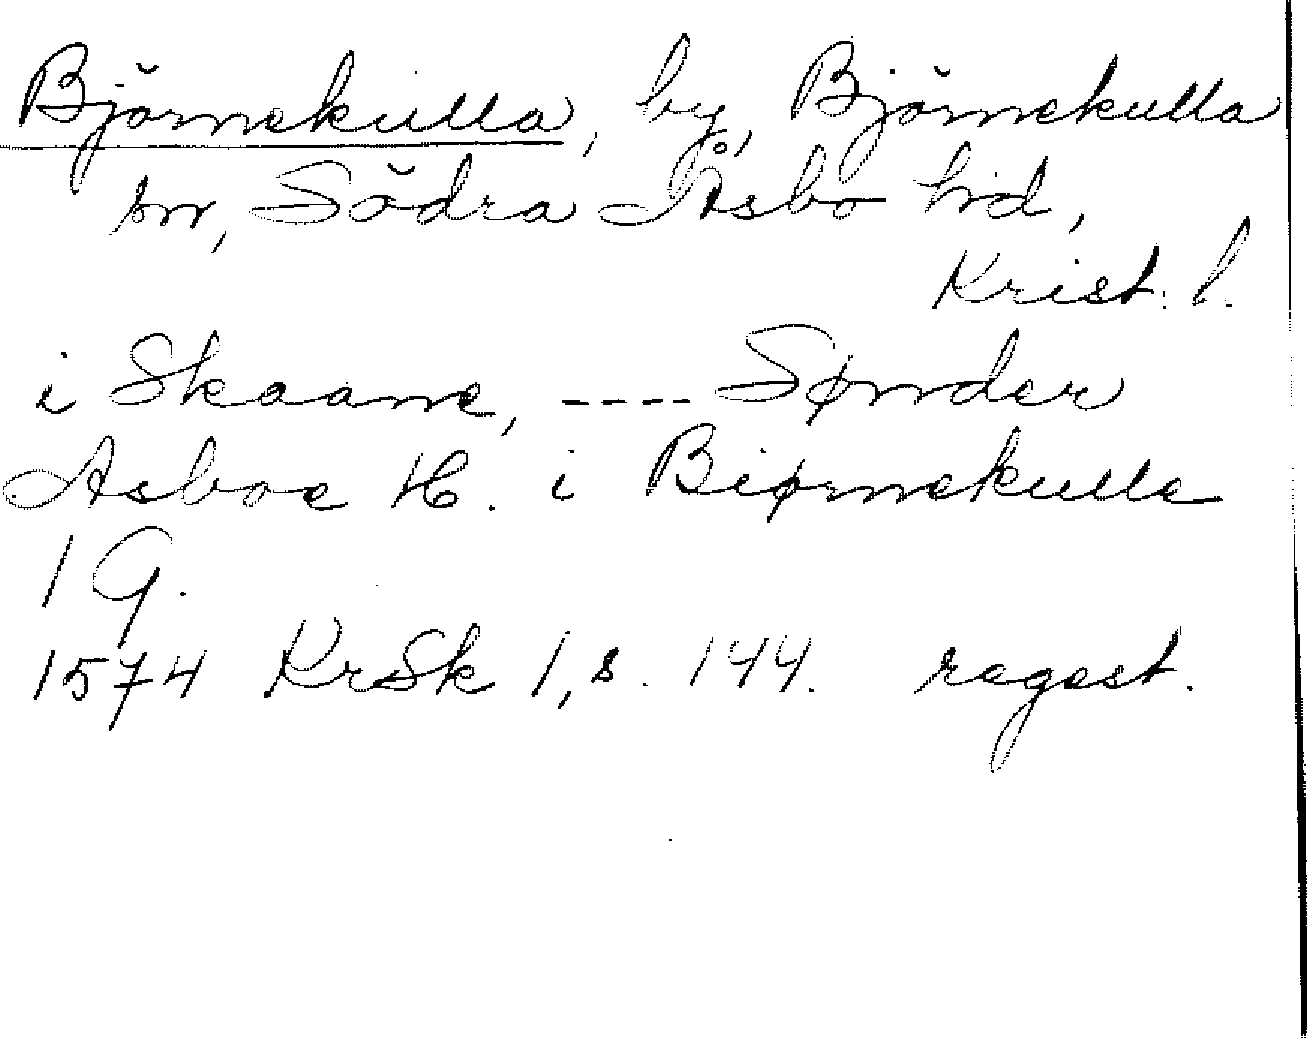 Björnekulla, by, Björnekulla
sn, Södra Åsbo hd,
Krist. l.
i Skaane, ---- Sønder
Asboe H. i Biørnekulle
1 G.
1574 KrSk 1, s. 144. regest.